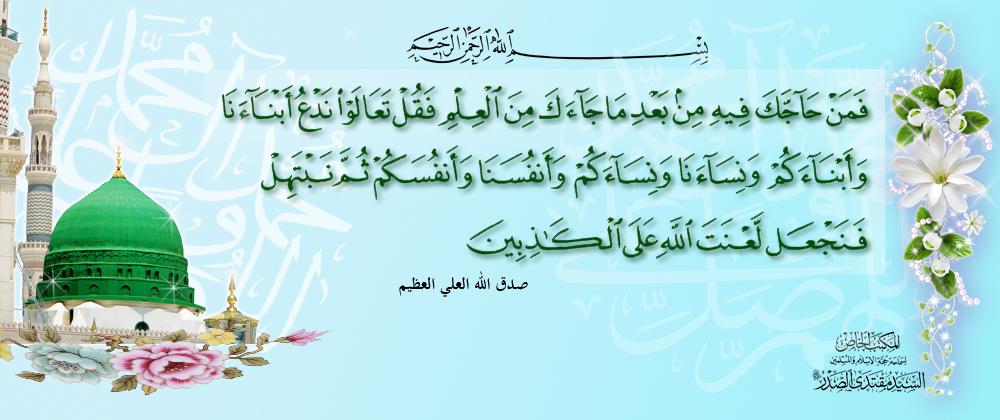 بِسْمِ اللهِ الرَّحْمٰنِ الرَّحِيْمِ
فَمَنْ حَآجَّكَ فِيهِ مِنۢ بَعْدِ مَا جَآءَكَ مِنَ ٱلْعِلْمِ فَقُلْ تَعَالَوْا۟ نَدْعُ أَبْنَآءَنَا
وَأَبْنَآءَكُمْ وَنِسَآءَنَا وَنِسَآءَكُمْ وَأَنفُسَنَا وَأَنفُسَكُمْ ثُمَّ نَبْتَهِلْ
فَنَجْعَل لَّعْنَتَ ٱللَّهِ عَلَى ٱلْكَـٰذِبِينَ
صدق الله العلي العظيم
المكتب الخاص
لسماحة حجة الاسلام والمسلمين
السيد مقتدى الصدر